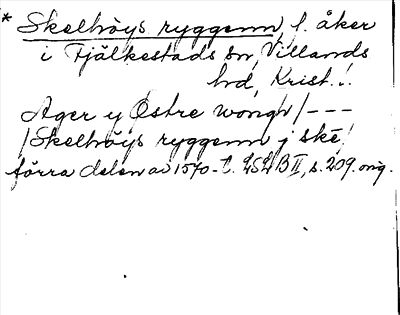 * Skelhöys ryggenn, f. åker
i Fjälkestads sn, Villands
hd, Krist. l.
Ager y Östre wongh /---
/Skelhöys ryggenn j skē/
förra delen av 1570-t. LSLB II, s. 209. orig.